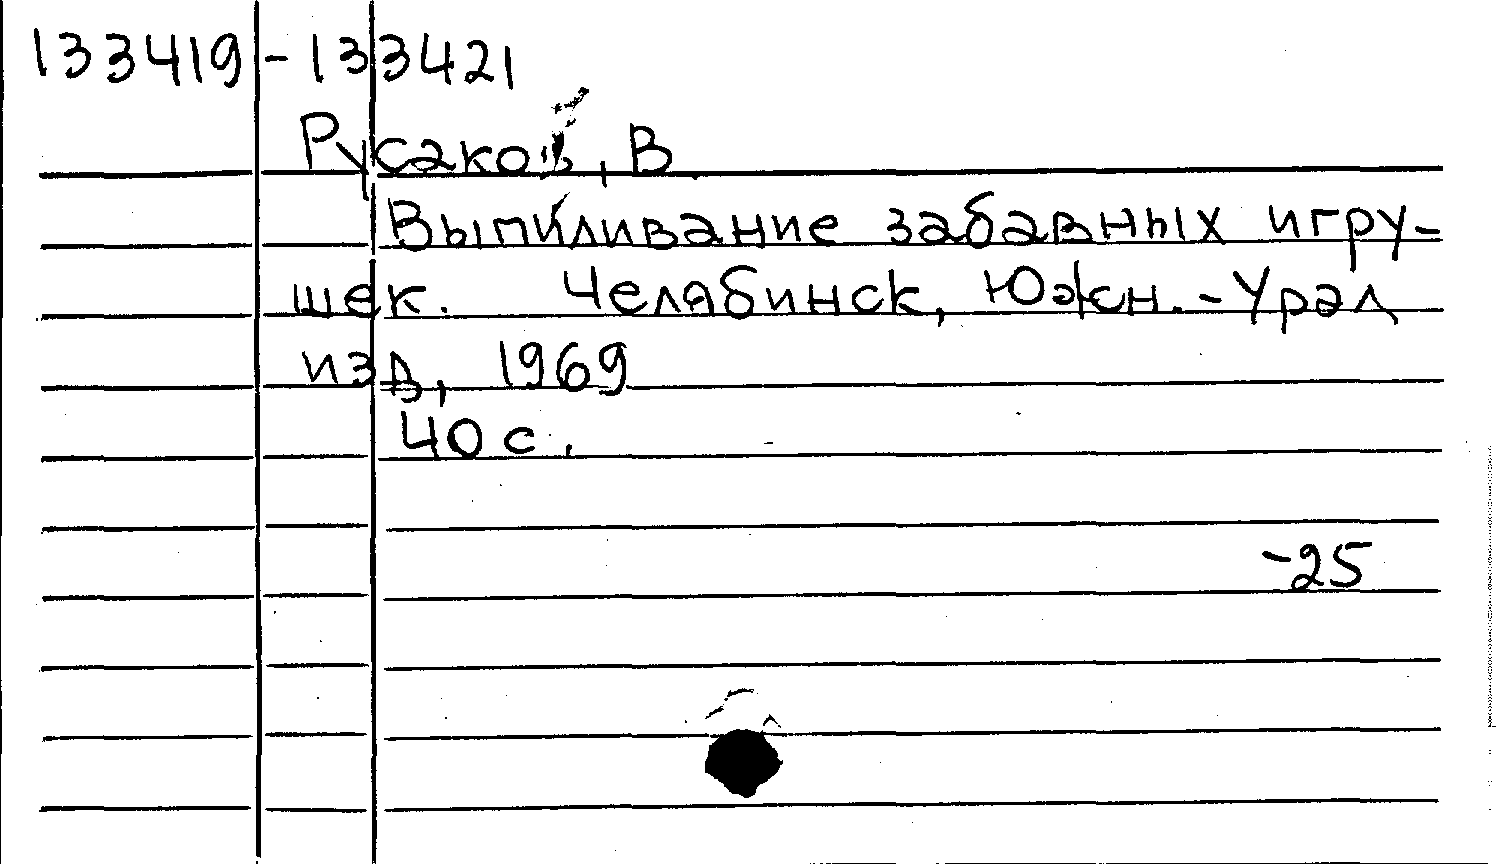 133419 - 133421
Русаков, В.
Выпиливание забавных игру-
шек. Челябинск, Южн.-Урал
изд, 1969
40 с.
-25